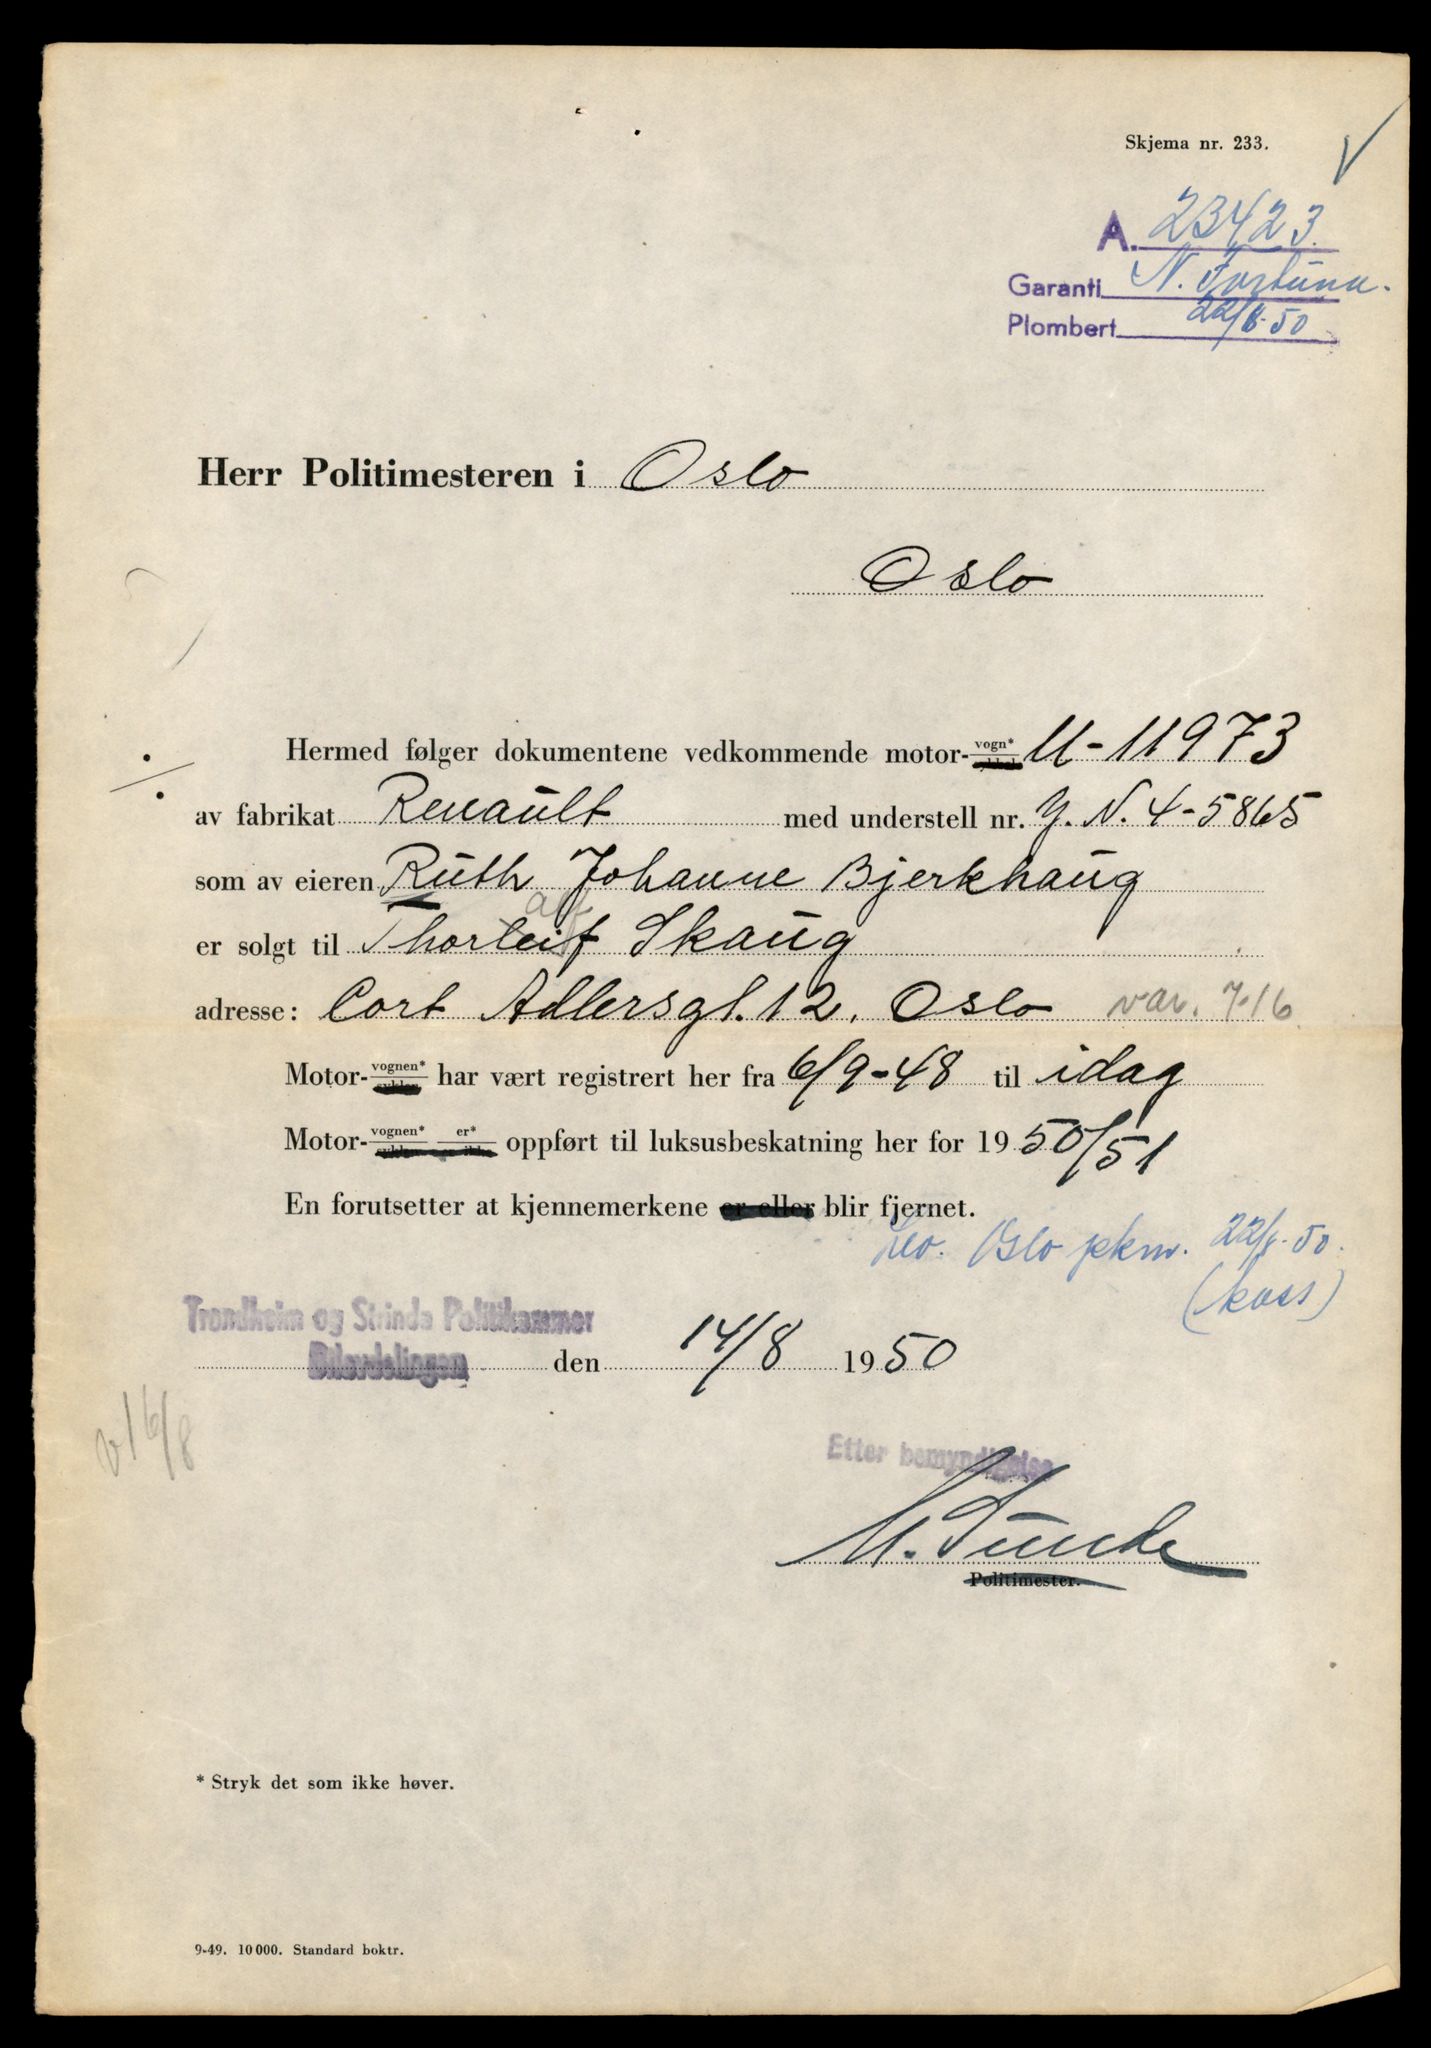 Skjema nr. 233.
A. 23423
Garanti N. Fortuna.
Plombert 22/8-50
Herr Politimesteren i Oslo
Oslo
Hermed følger dokumentene vedkommende motor-vogn* U-11973
av fabrikat Renault med understell nr. Y.N.4-5865
som av eieren Ruth Johanne Bjerkhaug
er solgt til Thorleif Skaug
adresse: Cort Adlersgt. 12. Oslo var. 7-16
Motor-vognen* har vært registrert her fra 6/9-48 til idag
Motor-vognen* er* oppført til luksusbeskatning her for 1950/51
En forutsetter at kjennemerkene er eller blir fjernet.
Oslo 22/8-50.
Trondheim og Strinda Politikammer
Bilavdelingen den 14/8 1950
16/8
Etter bemyndigelse
Politimester.
* Stryk det som ikke høver.
9-49. 10000. Standard boktr.